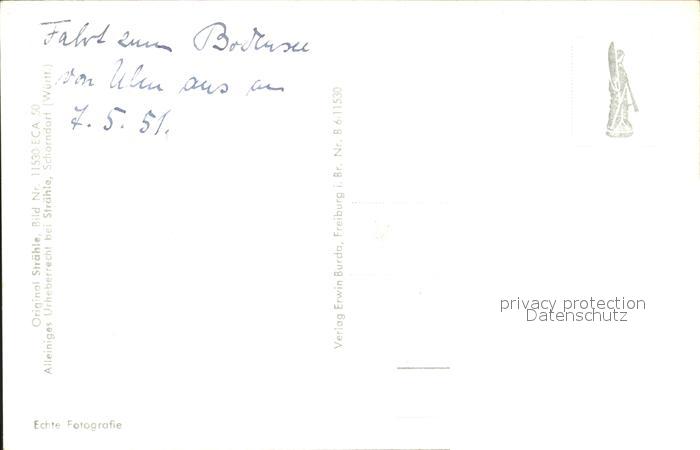 Fahrt zum Bodensee
von Ulm aus am
7. 5. 51.
Original Strähle, Bild Nr. 11530 ECA 50
Alleiniges Urheberrecht bei Strähle, Schorndorf (Württ.)
Verlag Erwin Burda, Freiburg i. Br. Nr. B 6 11530
privacy protection
Datenschutz
Echte Fotografie